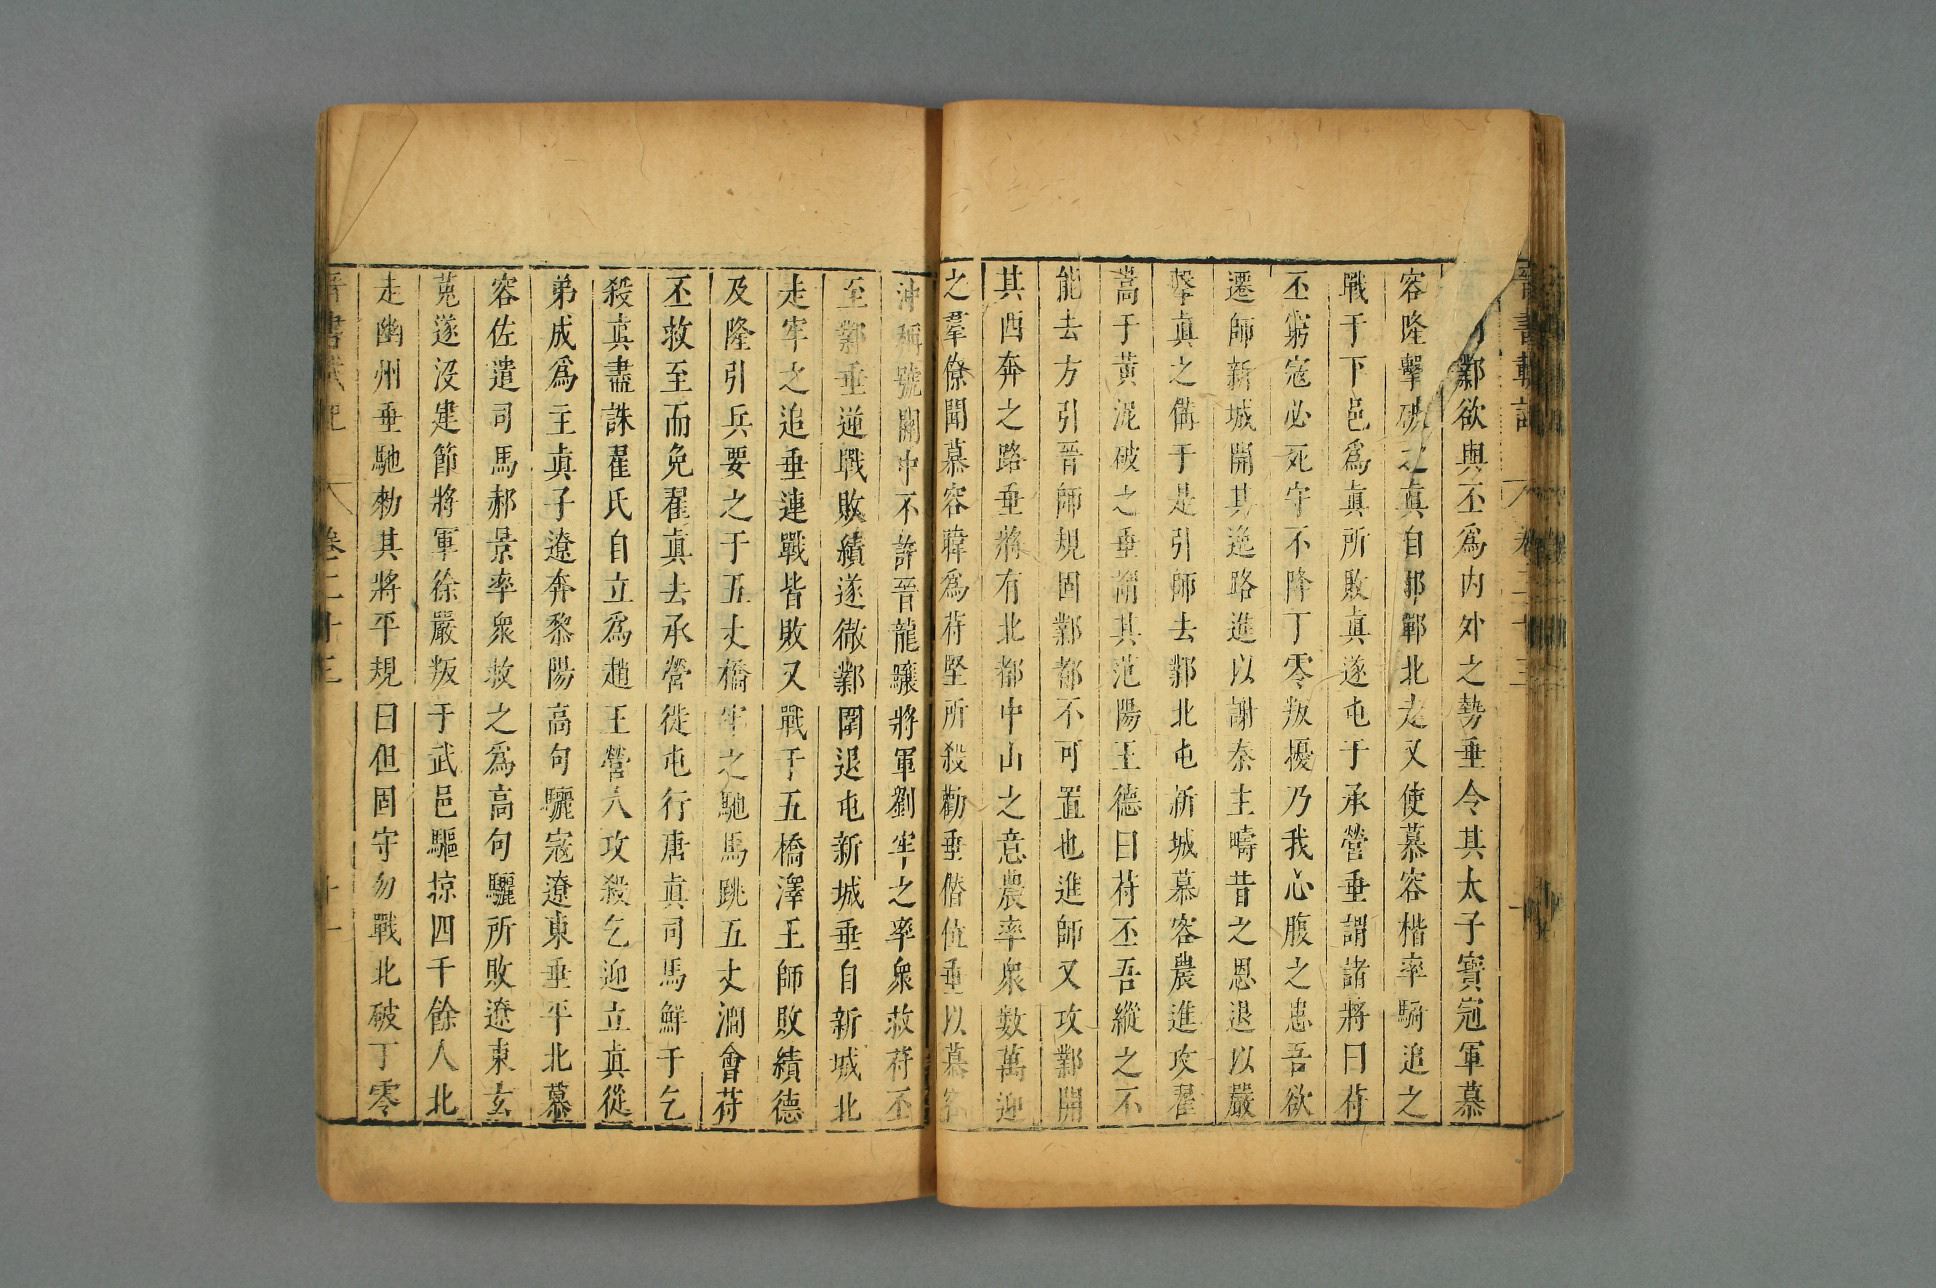 晉書載記 卷二十三
鄴欲與丕爲內外之勢垂令其太子寶冠軍慕
容隆擊破之真自邯鄲北走又使慕容楷率騎追之
戰于下邑爲真所敗真遂屯于承營垂謂諸將曰苻
丕窮寇必死守不降丁零叛擾乃我心腹之患吾欲
遷師新城開其逸路進以謝秦主疇昔之恩退以嚴
擊真之備于是引師去鄴北屯新城慕容農進攻翟
嵩于黃泥破之垂謂其范陽王德曰苻丕吾縱之不
能去方引晉師規固鄴都不可置也進師又攻鄴開
其西奔之路垂將有北都中山之意農率衆數萬迎
之羣僚聞慕容暐爲苻堅所殺勸垂僭位垂以慕容
沖稱號關中不許晉龍驤將軍劉牢之率衆救苻丕
至鄴垂逆戰敗績遂徹鄴圍退屯新城垂自新城北
走牢之追垂連戰皆敗又戰于五橋澤王師敗績德
及隆引兵要之于五丈橋牢之馳馬跳五丈澗會苻
丕救至而免翟真去承營徙屯行唐真司馬鮮于乞
殺真盡誅翟氏自立爲趙王營人攻殺乞迎立真從
弟成爲主真子遼奔黎陽高句驪寇遼東垂平北慕
容佐遣司馬郝景率衆救之爲高句驪所敗遼東玄
菟遂沒建節將軍徐嚴叛于武邑驅掠四千餘人北
走幽州垂馳勑其將平規曰但固守勿戰北破丁零
晉書載記 卷二十三 十一